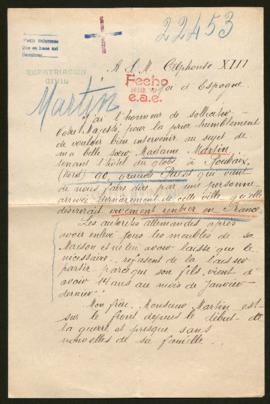 22453
A S. M. Alphonse XIII
Roi d'Espagne.
REPATRIACION
CIVIL
Fecho
e.a.e.
Martin
J'ai l'honneur de solliciter
votre Majesté pour la prier humblement
de vouloir bien intervenir au sujet de
ma belle sœur Madame Martin
tenant l'hôtel du globe à Roubaix
(Nord) 90, grande rue qui vient
de nous faire dire par une personne
arrivée dernièrement de cette ville qu'elle
désirerait vivement rentrer en France
Les autorités allemandes après
avoir enlevé tous les meubles de sa
Maison et ne lui avoir laissé que le
nécessaire, refusent de la laisser
partir parce que son fils vient d'
avoir 14 ans au mois de Janvier
dernier.
Mon frère, Monsieur Martin est
sur le front depuis le début de
la guerre et presque sans
nouvelles de sa famille.